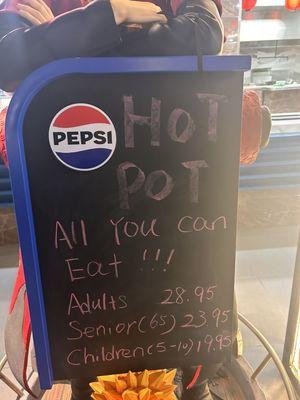 PEPSI
HOT
POT
All You can
Eat !!!
Adults 28.95
Senior (65) 23.95
Children (5-10) 19.95